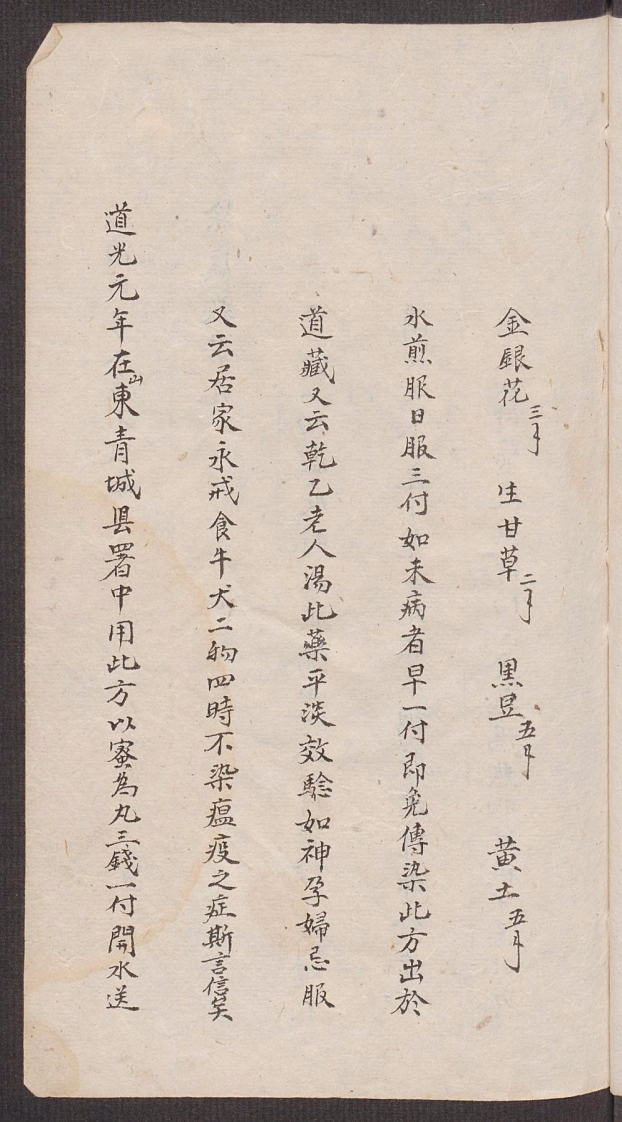 金銀花三钱 生甘草二钱 黒荳五钱 黄土五钱
水煎服日服三付如未病者早一付即免傳染此方出於
道藏又云乾乙老人湯此藥平淡效騐如神孕婦忌服
又云居家永戒食牛犬二物四時不染瘟疫之症斯言信矣
道光元年在山東青城县署中用此方以蜜為丸三錢一付開水送